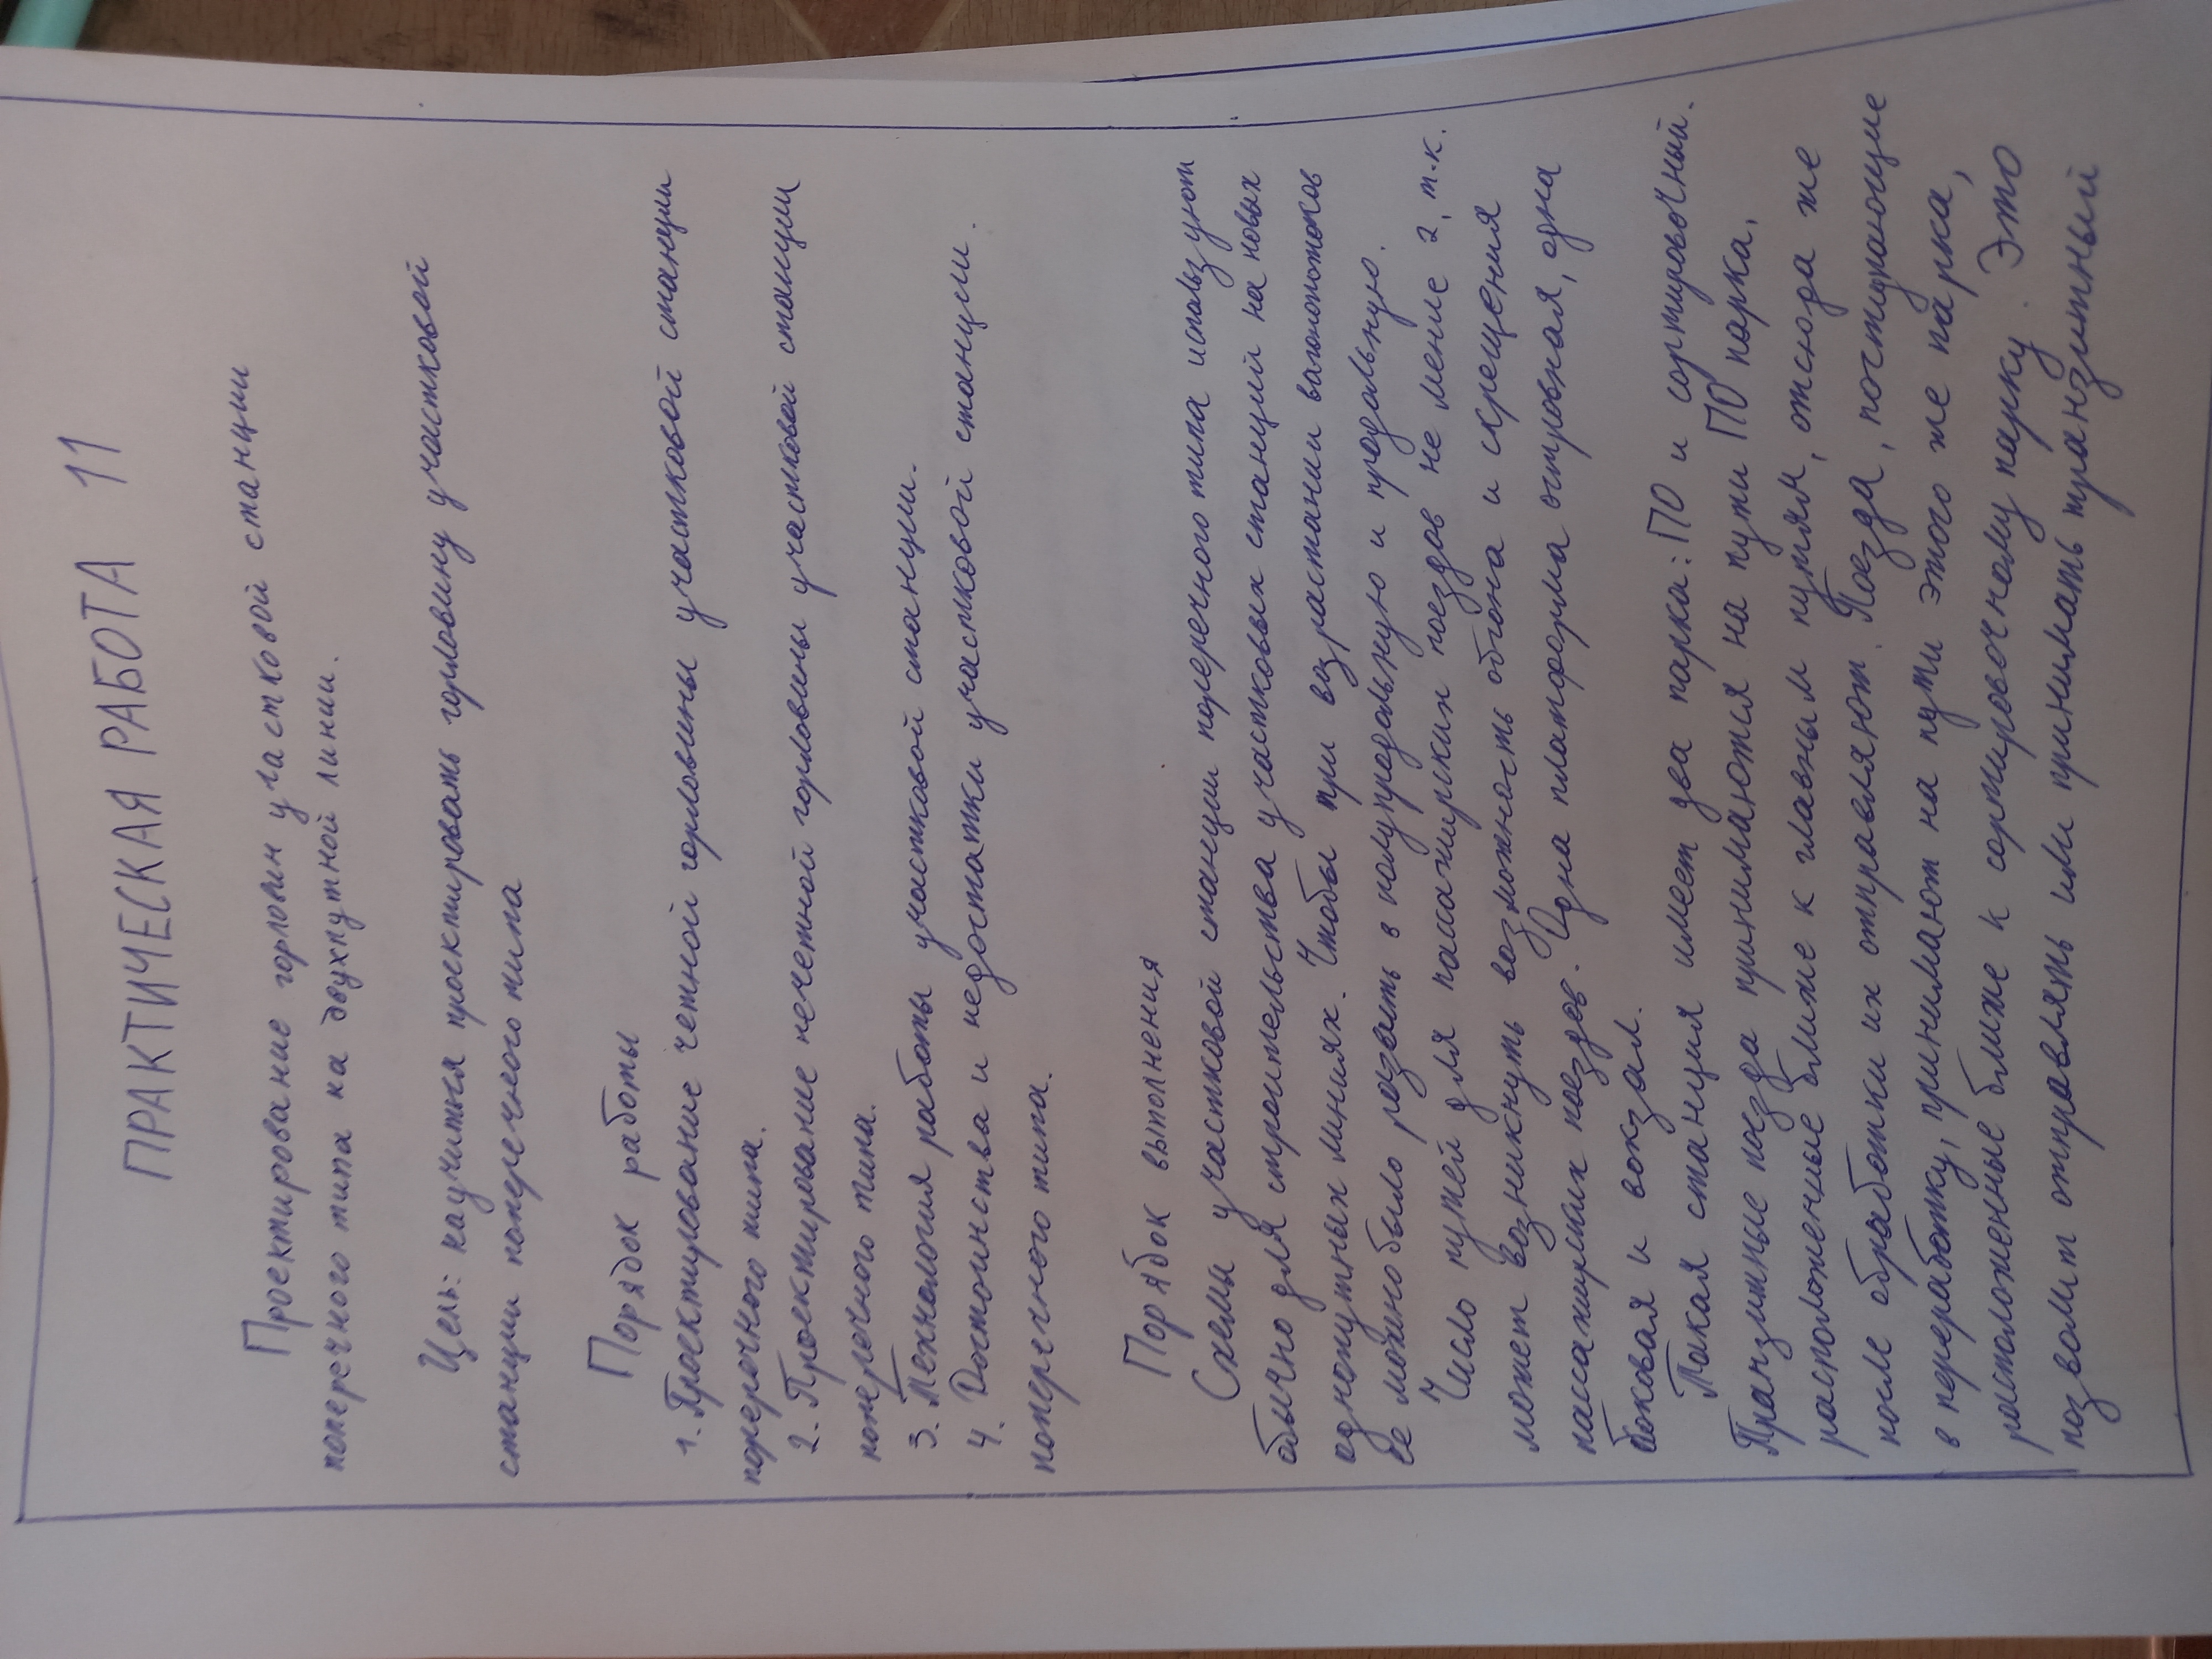 ПРАКТИЧЕСКАЯ РАБОТА 11
Проектирование горловин участковой станции
поперечного типа на двухпутной линии.
Цель: научиться проектировать горловину участковой
станции поперечного типа
Порядок работы
1. Проектирование четной горловины участковой станции
поперечного типа.
2. Проектирование нечетной горловины участковой станции
поперечного типа.
3. Технология работы участковой станции.
4. Достоинства и недостатки участковой станции
поперечного типа.
Порядок выполнения
Схемы участковой станции поперечного типа используют
обычно для строительства участковых станций на новых
однопутных линиях. Чтобы при возрастании вагонопотоков
ее можно было развить в полупродольную и продольную.
Число путей для пассажирских поездов не менее 2, т.к.
может возникнуть возможность обгона и скрещения
пассажирских поездов. Одна платформа островная, одна
боковая и вокзал.
Такая станция имеет два парка: ПО и сортировочный.
Транзитные поезда принимаются на пути ПО парка,
расположенные ближе к главным путям, отсюда же
после обработки их отправляют. Поезда, поступающие
в переработку, принимают на пути этого же парка,
расположенные ближе к сортировочному парку. Это
позволит отправлять или принимать транзитный